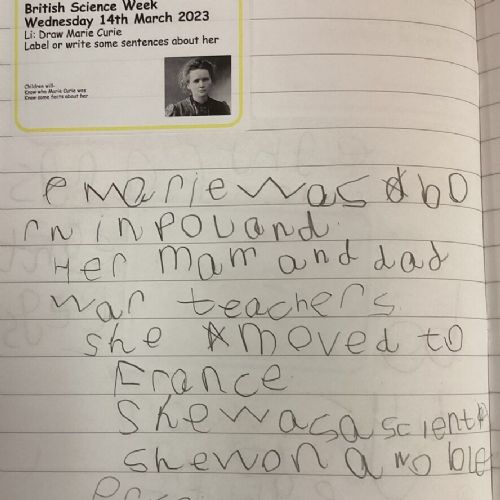 British Science Week
Wednesday 14th March 2023
Li: Draw Marie Curie
Label or write some sentences about her
Children will-
Know who Marie Curie was
Know some facts about her
e marie was bo
rn in poland.
Her mam and dad
war teachers.
she moved to
France.
She was a scient
she won a noble